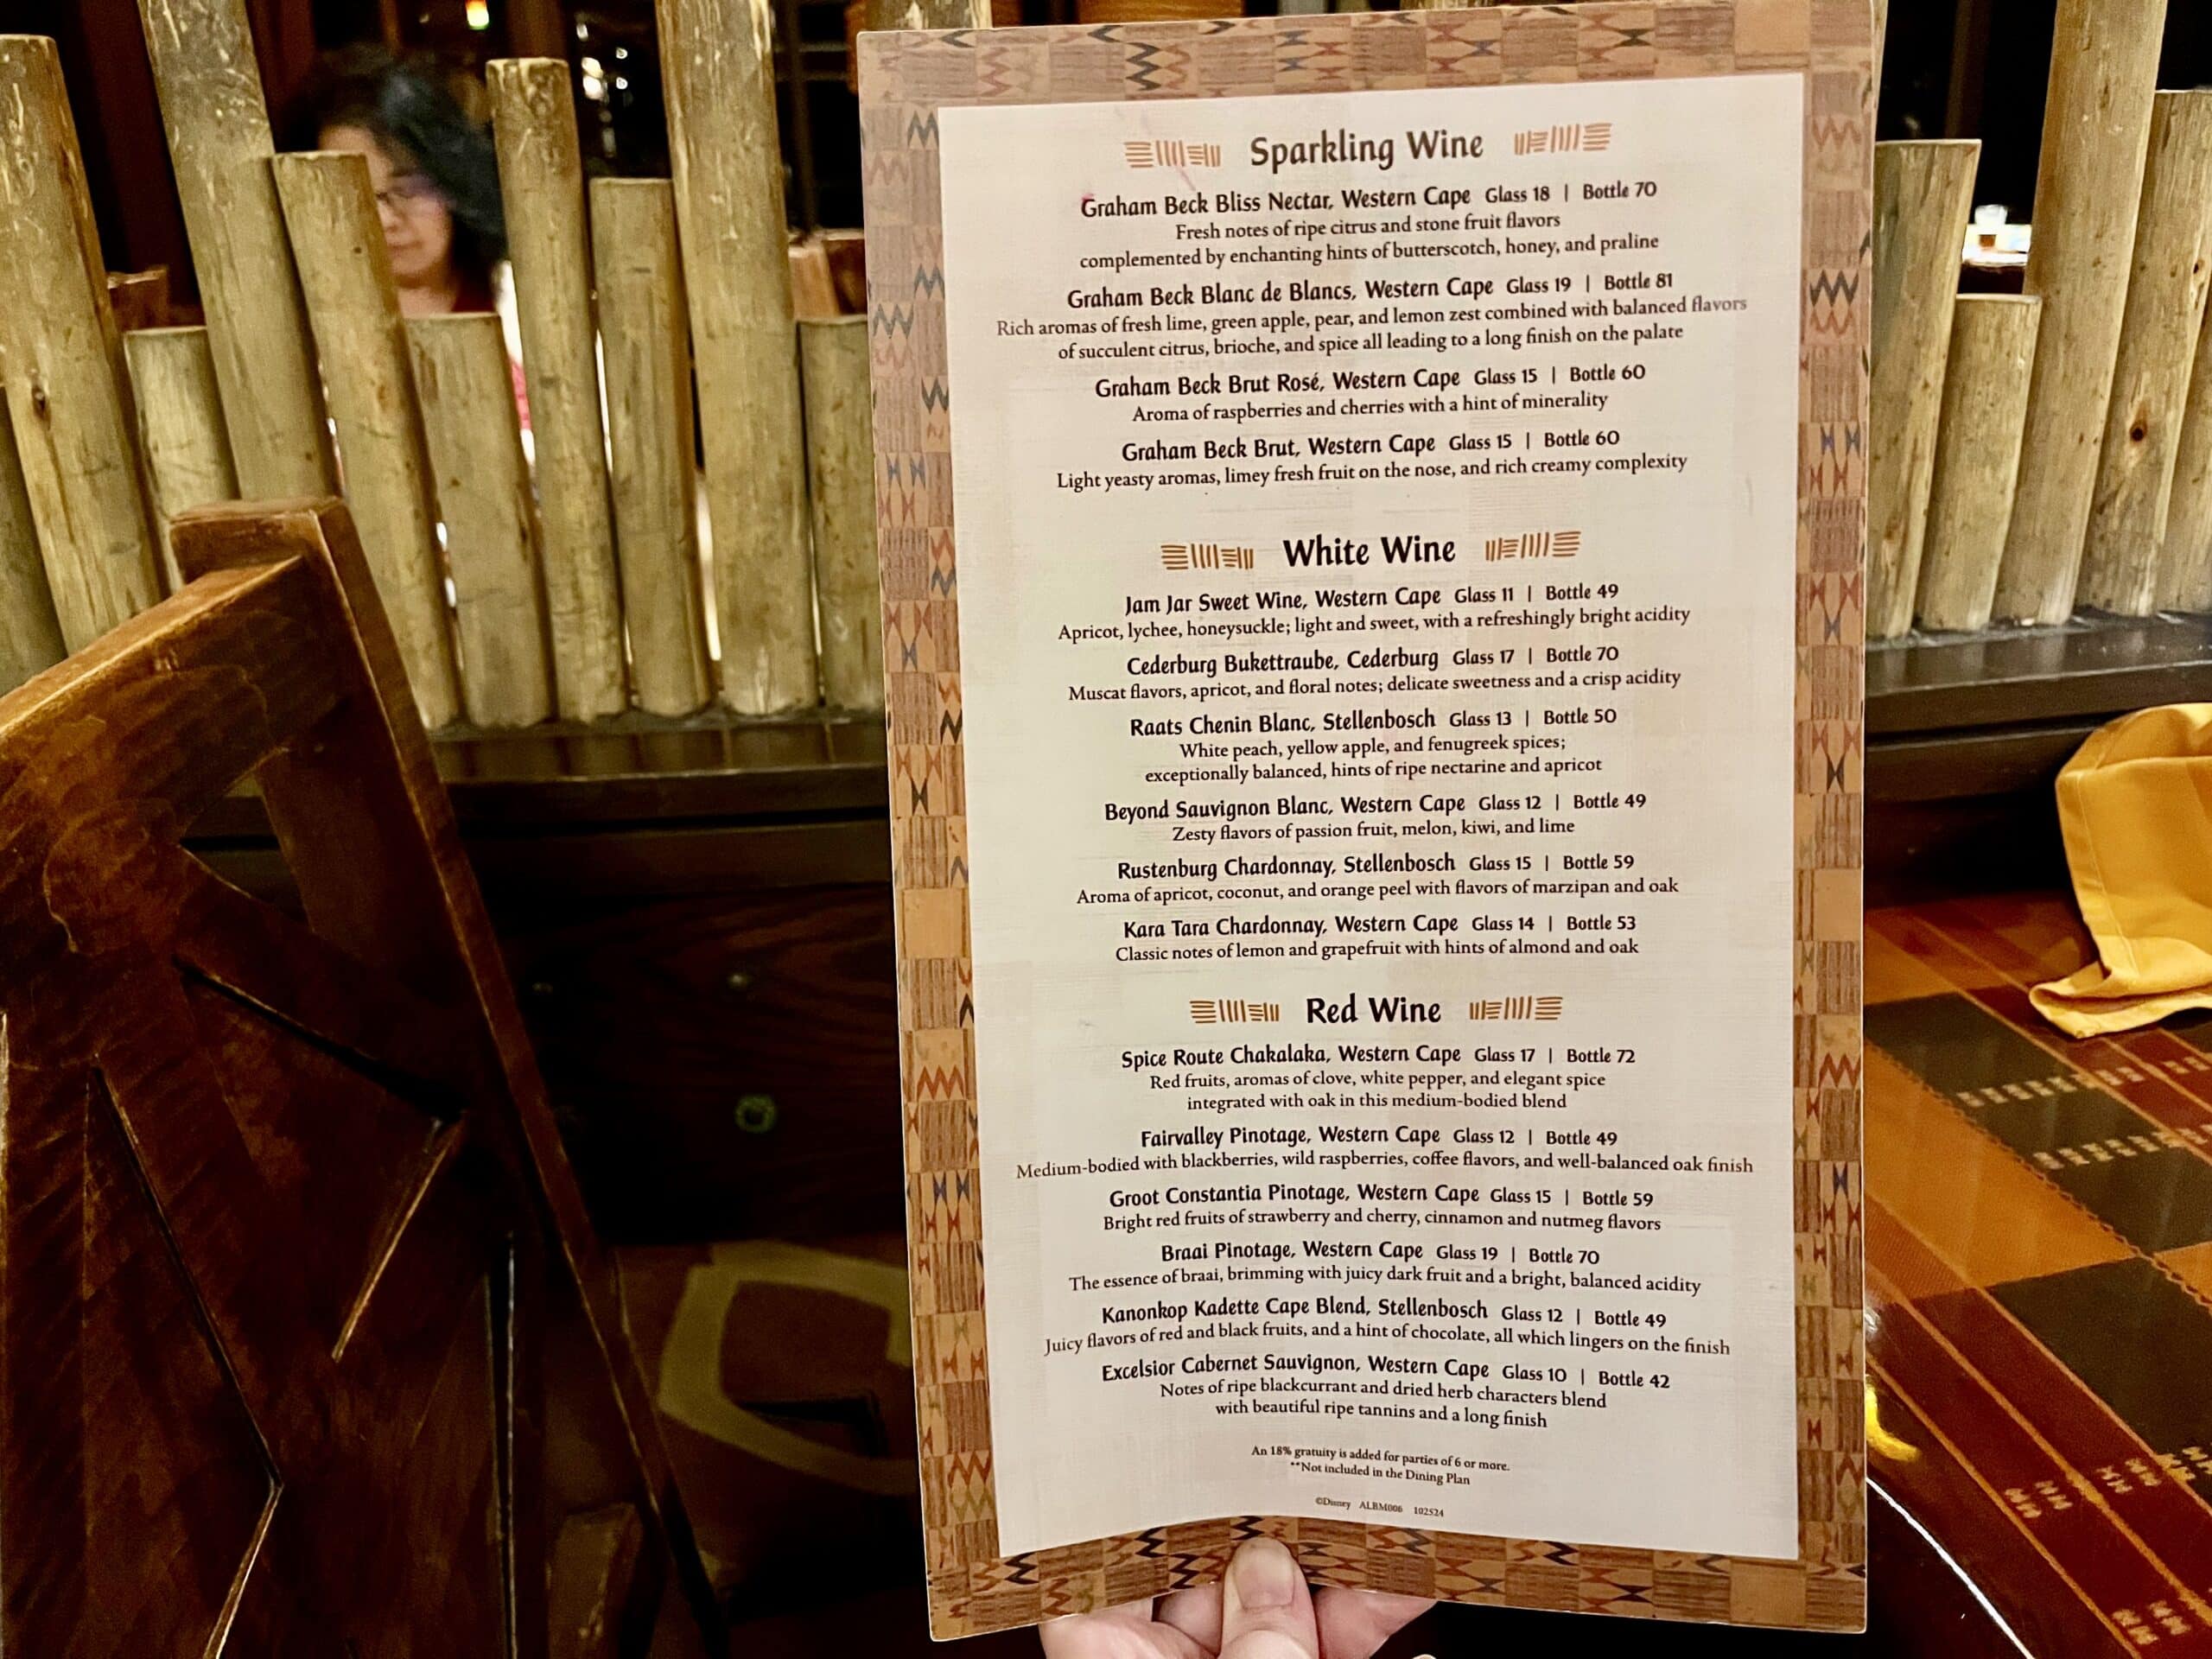 Sparkling Wine
Graham Beck Bliss Nectar, Western Cape Glass 18 | Bottle 70
Fresh notes of ripe citrus and stone fruit flavors
complemented by enchanting hints of butterscotch, honey, and praline
Graham Beck Blanc de Blancs, Western Cape Glass 19 | Bottle 81
Rich aromas of fresh lime, green apple, pear, and lemon zest combined with balanced flavors
of succulent citrus, brioche, and spice all leading to a long finish on the palate
Graham Beck Brut Rosé, Western Cape Glass 15 | Bottle 60
Aroma of raspberries and cherries with a hint of minerality
Graham Beck Brut, Western Cape Glass 15 | Bottle 60
Light yeasty aromas, limey fresh fruit on the nose, and rich creamy complexity
White Wine
Jam Jar Sweet Wine, Western Cape Glass 11 | Bottle 49
Apricot, lychee, honeysuckle; light and sweet, with a refreshingly bright acidity
Cederburg Bukettraube, Cederburg Glass 17 | Bottle 70
Muscat flavors, apricot, and floral notes; delicate sweetness and a crisp acidity
Raats Chenin Blanc, Stellenbosch Glass 13 | Bottle 50
White peach, yellow apple, and fenugreek spices;
exceptionally balanced, hints of ripe nectarine and apricot
Beyond Sauvignon Blanc, Western Cape Glass 12 | Bottle 49
Zesty flavors of passion fruit, melon, kiwi, and lime
Rustenburg Chardonnay, Stellenbosch Glass 15 | Bottle 59
Aroma of apricot, coconut, and orange peel with flavors of marzipan and oak
Kara Tara Chardonnay, Western Cape Glass 14 | Bottle 53
Classic notes of lemon and grapefruit with hints of almond and oak
Red Wine
Spice Route Chakalaka, Western Cape Glass 17 | Bottle 72
Red fruits, aromas of clove, white pepper, and elegant spice
integrated with oak in this medium-bodied blend
Fairvalley Pinotage, Western Cape Glass 12 | Bottle 49
Medium-bodied with blackberries, wild raspberries, coffee flavors, and well-balanced oak finish
Groot Constantia Pinotage, Western Cape Glass 15 | Bottle 59
Bright red fruits of strawberry and cherry, cinnamon and nutmeg flavors
Braai Pinotage, Western Cape Glass 19 | Bottle 70
The essence of braai, brimming with juicy dark fruit and a bright, balanced acidity
Kanonkop Kadette Cape Blend, Stellenbosch Glass 12 | Bottle 49
Juicy flavors of red and black fruits, and a hint of chocolate, all which lingers on the finish
Excelsior Cabernet Sauvignon, Western Cape Glass 10 | Bottle 42
Notes of ripe blackcurrant and dried herb characters blend
with beautiful ripe tannins and a long finish
An 18% gratuity is added for parties of 6 or more.
**Not included in the Dining Plan
©Disney ALBM006 102524